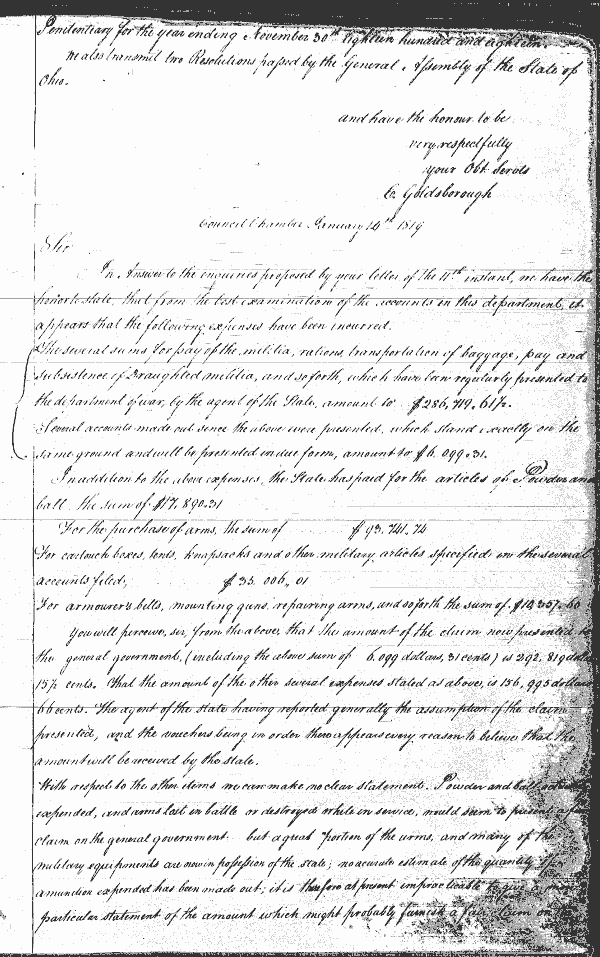 Penitentiary for the year ending November 30th Eighteen hundred and eighteen.
We also transmit two Resolutions passed by the General Assembly of the State of
Ohio.
and have the honour to be
very respectfully
your Obt Servts
C. Goldsborough
Council Chamber January 14th 1819
Sir
In Answer to the enquiries proposed by your letter of the 11th instant, we have the
honor to state, that from the best examination of the accounts in this department, it
appears that the following expenses have been incurred.
The several sums for pay of the militia, rations, transportation of baggage, pay and
subsistence of Draughted militia, and so forth, which have been regularly presented to
the department of war, by the agent of the State, amount to $286,719,61½.
Several accounts made out sence the above were presented, which stand exactly on the
same ground and will be presented in due form, amount to $6.099.31.
In addition to the above expenses, the State has paid for the articles of Powder and
ball the sum of $17,890.31
For the purchase of arms, the sum of $93,741,74
For cartouch boxes, tents, knapsacks and other military articles specified in the several
accounts filed, $35.006,01
For armourer's bills, mounting guns, repairing arms, and so forth the sum of $10,357.60
You will perceive, sir, from the above, that the amount of the claim now presented to
the general government, (including the above sum of 6,099 dollars, 31 cents) is 292,819 dolls
15½ cents. that the amount of the other several expenses stated as above, is 156,995 dollars
66 cents. The agent of the state having reported generally the assumption of the claim
presented, and the vouchers being in order there appears every reason to believe that the
amount will be received by the state.
With respect to the other items we can make no clear statement. Powder and ball
expended, and arms lost in battle or destroyed while in service, would seem to present a
claim on the general government but a great portion of the arms, and many of the
military equipments are now in possession of the state; no accurate estimate of the quantity of
amunition expended has been made out; it is therefore at present impracticable to give a more
particular statement of the amount which might probably furnish a fair claim on the